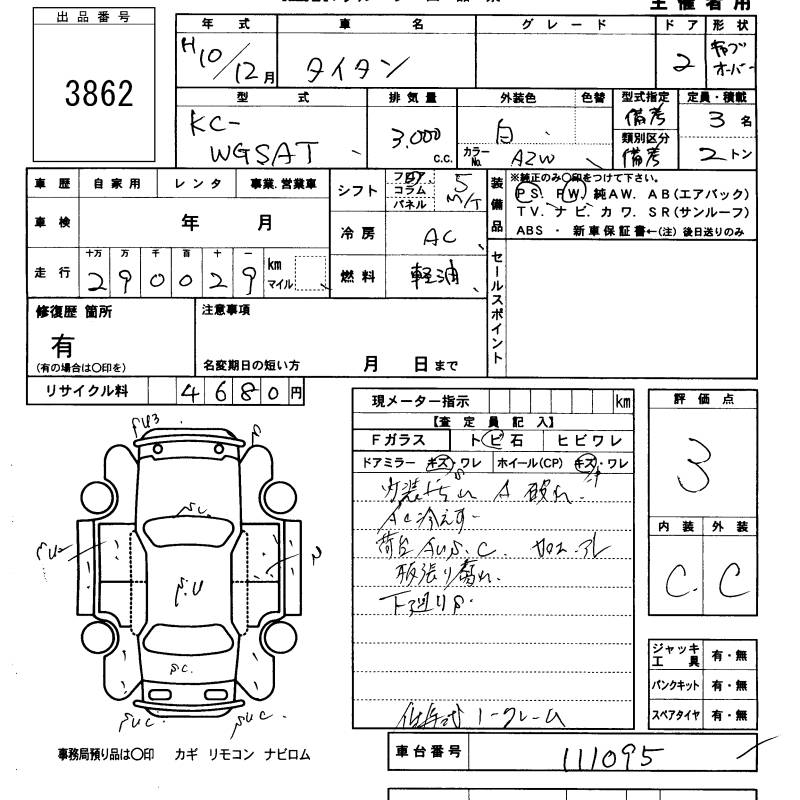 主催者用
出品番号
3862
年式 車名 グレード ドア 形状
H10/12月 タイタン 2 キャブオーバー
型式 排気量 外装色 色替 型式指定 定員・積載
KC- 3.000 c.c. 白 備考 3名
WGSAT カラーNo. A2W 類別区分 備考 2トン
車歴 自家用 レンタ 事業.営業車
シフト フロア コラム パネル 5 M/T
装備品 ※純正のみ○印をつけて下さい。
PS. PW. 純AW. AB(エアバック)
TV. ナビ. カワ. SR(サンルーフ)
ABS ・ 新車保証書←(注) 後日送りのみ
車検 年 月
冷房 AC
走行 十万 万 千 百 十 一 km マイル
290029
燃料 軽油
セールスポイント
修復歴 箇所
有
(有の場合は○印を)
注意事項
名変期日の短い方 月 日まで
リサイクル料 4680円
現メーター指示 km
【査定員記入】
Fガラス トビ石 ヒビワレ
ドアミラー キズ・ワレ ホイール(CP) キズ・ワレ
A 破れ
AC冷えず
荷台 AUS.C.
板張り腐れ
下廻りS.
評価点
3
内装 外装
C. C
ジャッキ工具 有・無
パンクキット 有・無
スペアタイヤ 有・無
SU3
S.U
S.C.
SUC
SUC.
事務局預り品は○印 カギ リモコン ナビロム
車台番号 111095